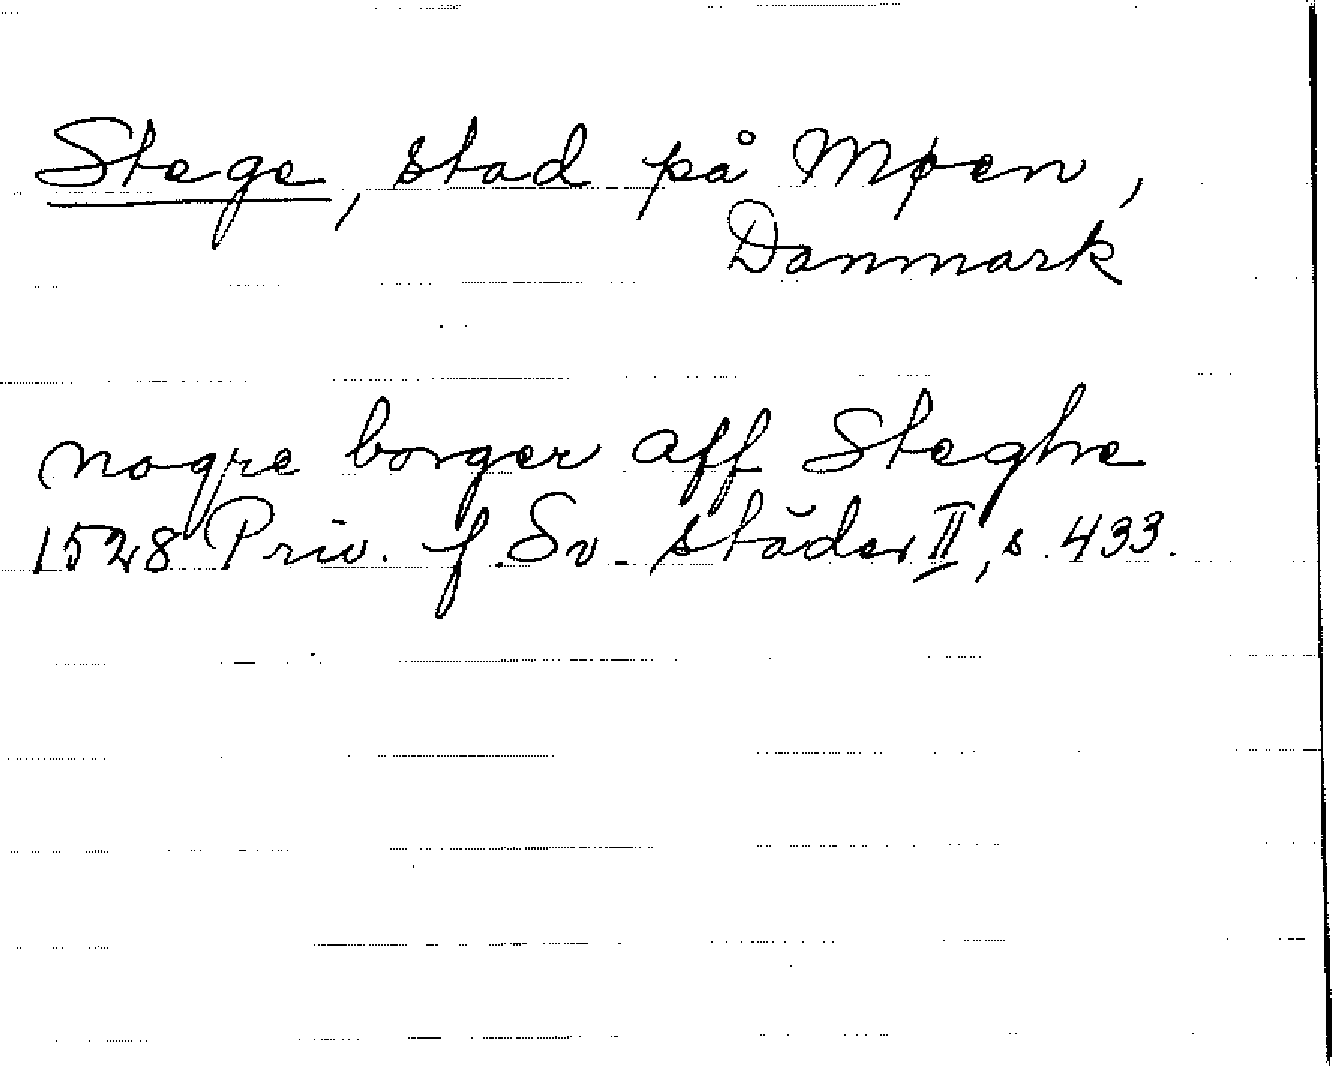 Stege, stad på Møen,
Danmark
nogre borger aff Steghe
1528 Priv. f. Sv. städer II, s. 433.